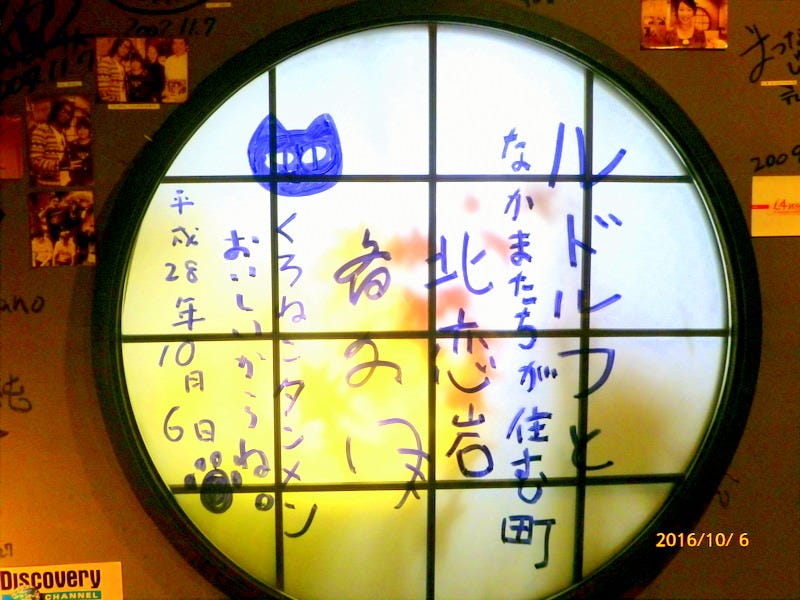 ルドルフと
なかまたちが住む町
北恋岩
くろねこタンメン
おいしいからね。
平成28年10月6日
2007.11.7
2009
Discovery
CHANNEL
2016/10/ 6